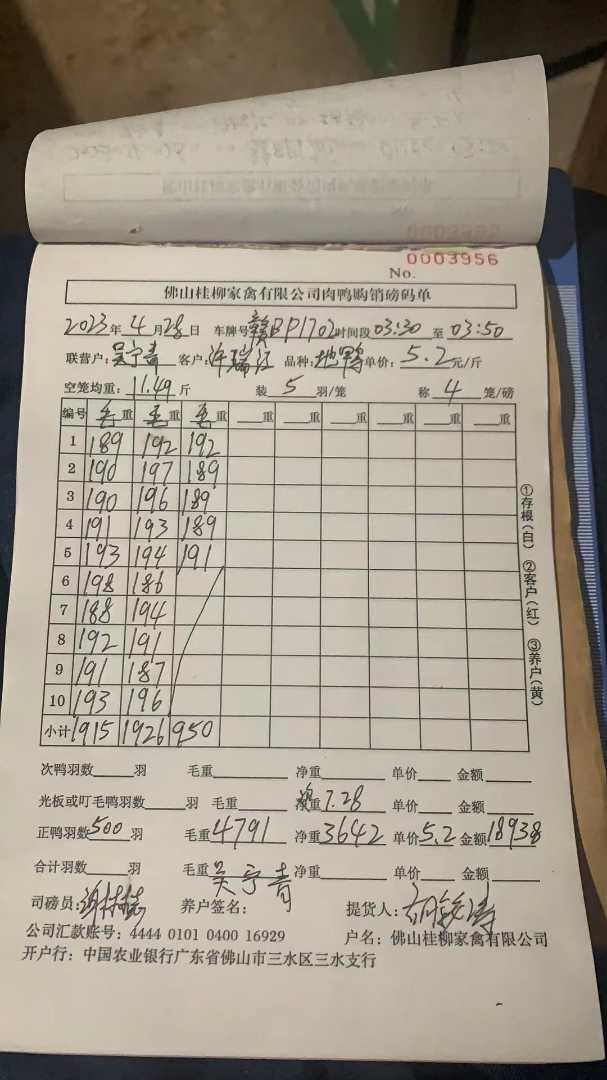 0003956
No.
佛山桂柳家禽有限公司肉鸭购销磅码单
2023年4月28日 车牌号赣BP1702时间段03:30至03:50
联营户:吴宁青 客户:许瑞江 品种:地鸭 单价:5.2元/斤
空笼均重:11.49斤 装5羽/笼 称4笼/磅
编号 毛重 毛重 毛重 重 重 重 重 重 重
1 189 192 192
2 190 197 189
3 190 196 189
4 191 193 189
5 193 194 191
6 198 186
7 188 194
8 192 191
9 191 187
10 193 196
小计 1915 1926 950
①存根(白) ②客户(红) ③养户(黄)
次鸭羽数 羽 毛重 净重 单价 金额
光板或叮毛鸭羽数 羽 毛重 净重7.28 单价 金额
正鸭羽数500羽 毛重4791 净重3642 单价5.2 金额18938
合计羽数 羽 毛重 净重 单价 金额
司磅员: 养户签名:吴宁青 提货人:
公司汇款账号:4444 0101 0400 16929 户名:佛山桂柳家禽有限公司
开户行:中国农业银行广东省佛山市三水区三水支行